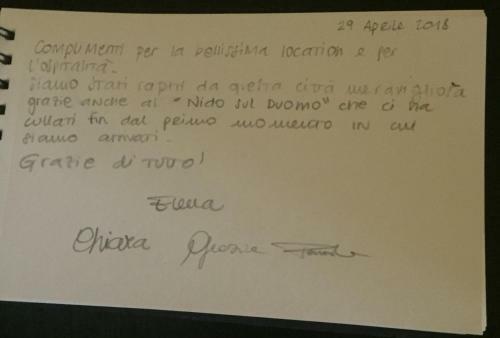 29 Aprile 2018
Complimenti per la bellissima location e per
l'ospitalità.
Siamo stati rapiti da questa città meravigliosa
grazie anche al "Nido sul Duomo" che ci ha
cullati fin dal primo momento in cui
siamo arrivati.
Grazie di tutto!
Elena
Chiara